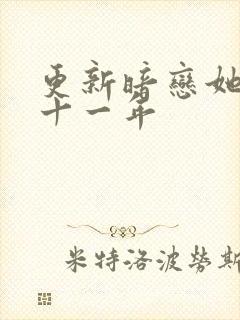 更新暗戀她
十一年
米特洛波勞斯